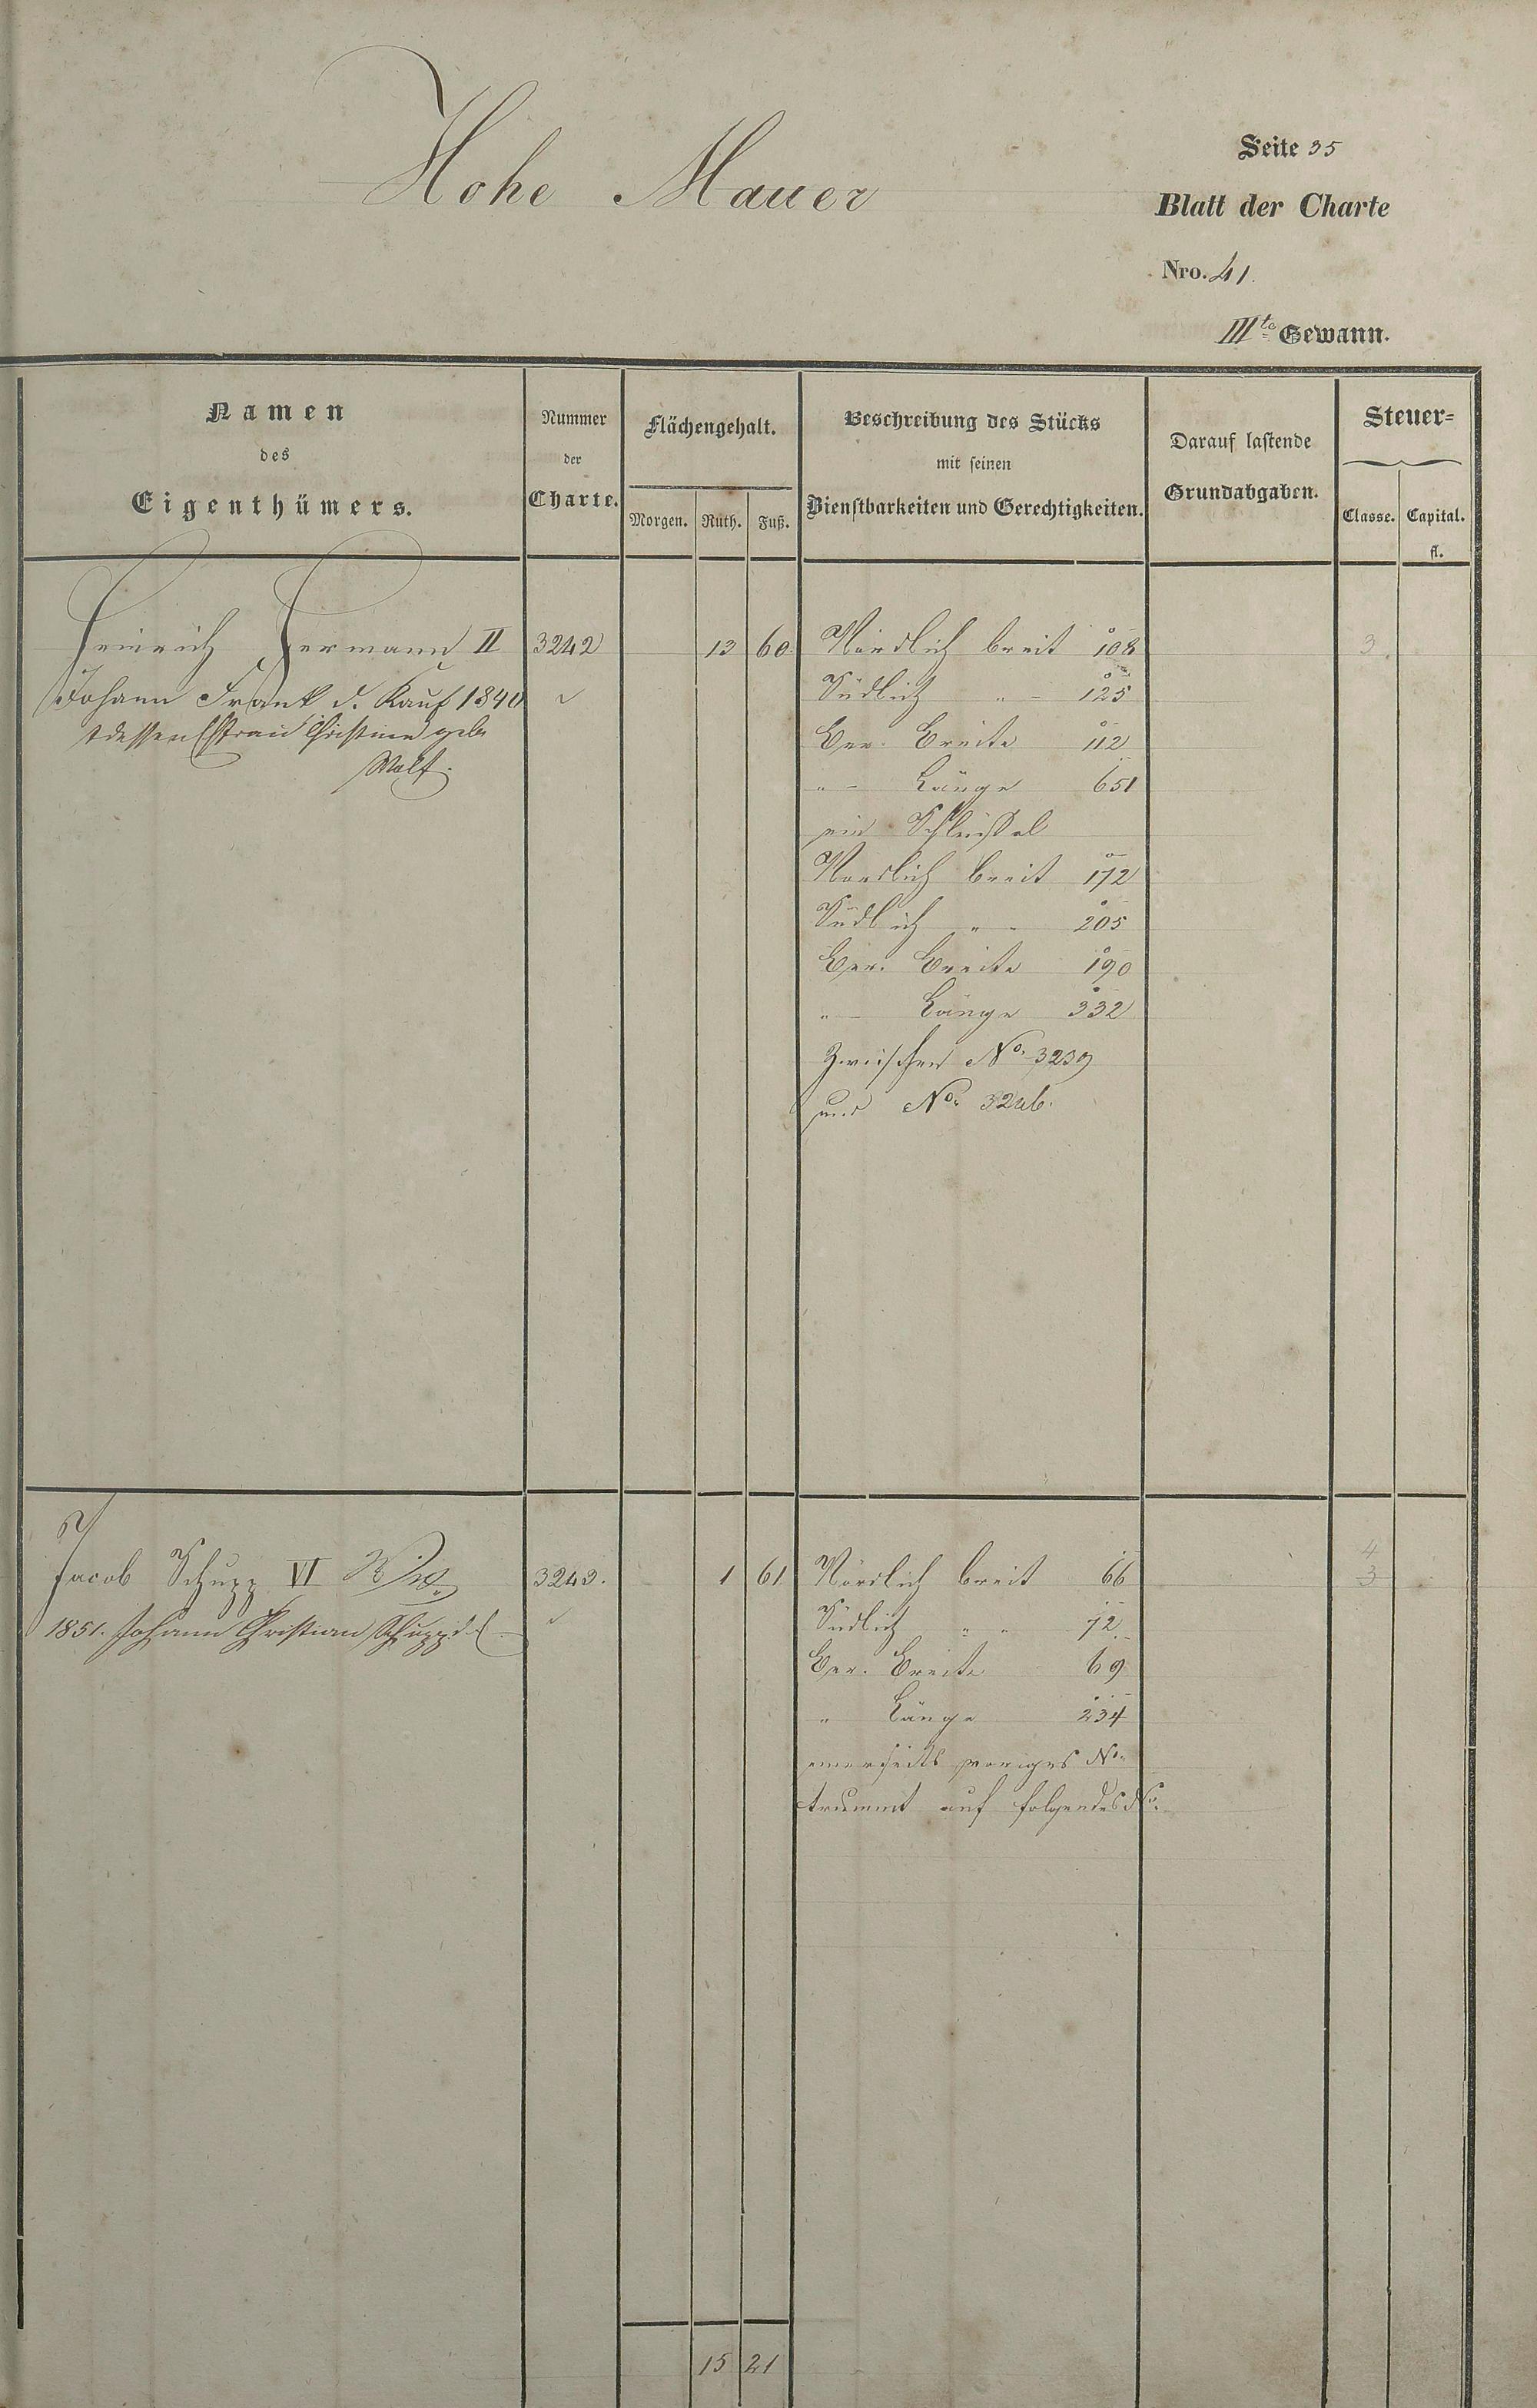 Hohe Mauer
Seite 35
Blatt der Charte
Nro. 41.
IIIte Gewann.
Namen
des
Eigenthümers.
Nummer
der
Charte.
Flächengehalt.
Morgen. Ruth. Fuß.
Beschreibung des Stücks
mit seinen
Dienstbarkeiten und Gerechtigkeiten.
Darauf lastende
Grundabgaben.
Steuer-
Classe. Capital.
fl.
Heinrich Hermann II 3242 13 60 Nördlich breit 108 3
Johann Frank d. Kauf 1840 Südlich " - 125
dessen Ehfrau Christine geb. Ber. Breite 112
Wolf. " - Länge 651
ein Schlüssel
Nördlich breit 172
Südlich " - 205
Ber. Breite 190
" - Länge 332
zwischen No. 3239
und No. 3246.
4
Jacob Schupp VI 3243. 1 61 Nördlich breit 66 3
1851. Johann Christian Schupp Südlich " - 72
Ber. Breite 69
" Länge 234
einerseits voriges No.
trummt auf folgendes No.
15 21